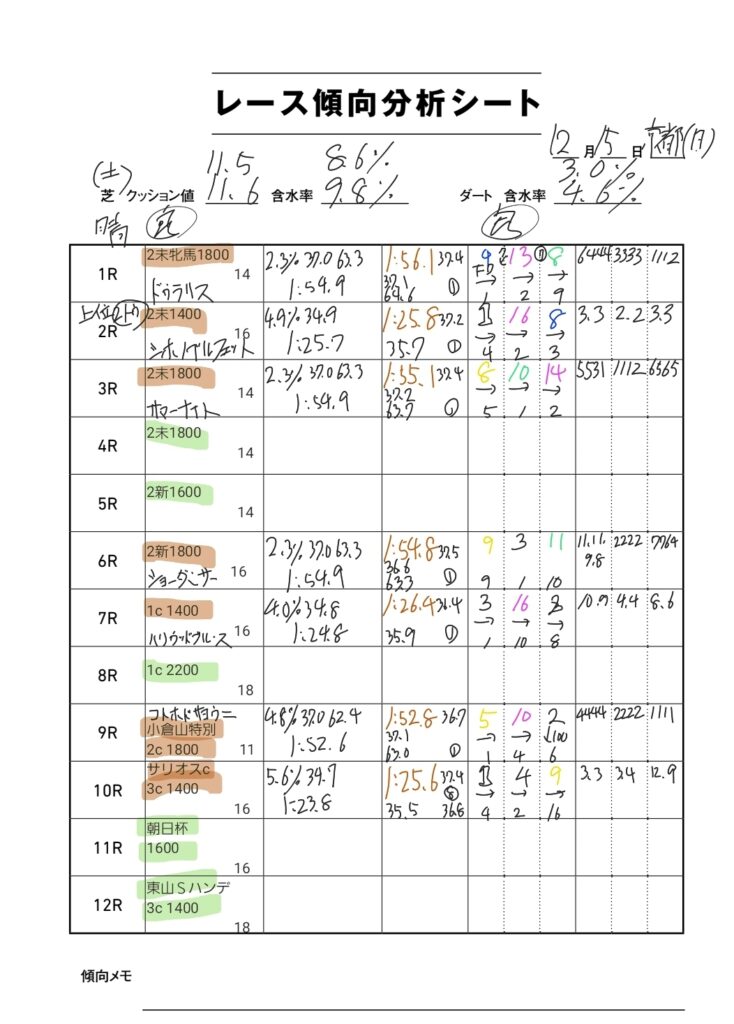 レース傾向分析シート
12月15日 京都(日)
(土) 11.5 8.6% 3.0%
芝 クッション値 11.6 含水率 9.8% ダート 含水率 4.6%
晴 良 良
1R 2未牝馬1800 14 2.3% 37.0 63.3 1:56.1 37.4 9 13 8 6444 3333 1112
ドゥラリス 1:54.9 37.1 64.6 ① → → → 1 2 9
2R 2未1400 16 4.9% 34.9 1:25.8 37.2 16 8 3.3 2.2 3.3
1:25.7 35.7 ① → → → 4 2 3
3R 2未1800 14 2.3% 37.0 63.3 1:55.1 37.4 8 10 14 5531 1112 6565
1:54.9 37.2 63.7 → → → 5 1 2
4R 2未1800 14
5R 2新1600 14
6R 2新1800 16 2.3% 37.0 63.3 1:54.8 37.5 9 3 11 11.11.9.8 2222 7764
1:54.9 36.6 63.3 ① 9 1 10
7R 1c 1400 16 4.0% 34.8 1:26.4 36.4 3 16 10.9 4.4 8.6
1:24.8 35.9 ① → → → 1 10 8
8R 1c 2200 18
9R コトホドサヨウニ
小倉山特別 4.8% 37.0 62.4 1:52.8 36.7 5 10 2 4444 2222 1111
2c 1800 11 1:52.6 37.1 63.0 ① → → 1 4 6
10R サリオスc 5.6% 34.7 1:25.6 37.4 4 9 3.3 3.4 12.9
3c 1400 16 1:23.8 35.5 36.8 → → → 4 2 16
11R 朝日杯
1600 16
12R 東山Sハンデ
3c 1400 18
傾向メモ